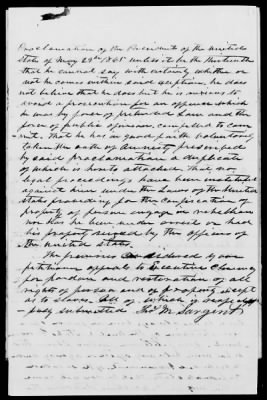 Proclamation of the President of the United
State of May 29th 1865 unless it be the thirteenth
that he cannot say with certainty whether or
not he comes within said exception, he does
not believe that he does but he is anxious to
avoid a prosecution for an offense which
he was by force of pretended Law and the
force of public opinion, compelled to com
mit, That he has in good faith voluntarily
taken the oath of Amnesty prescribed
by said proclamation a duplicate
of which is hereto attached. That no
legal proceedings have been instituted
against him under the Laws of the United
States providing for the confiscation of
property of persons engaged in rebellion
nor has he been under arrest or had
his property seized by the officers of
the United States.
The premises considered your
petitioner appeals to Executive Clemency
for pardon and restoration of all
rights of person and of property except
as to slaves. All of which is respect
fully submitted Thos M Sargent